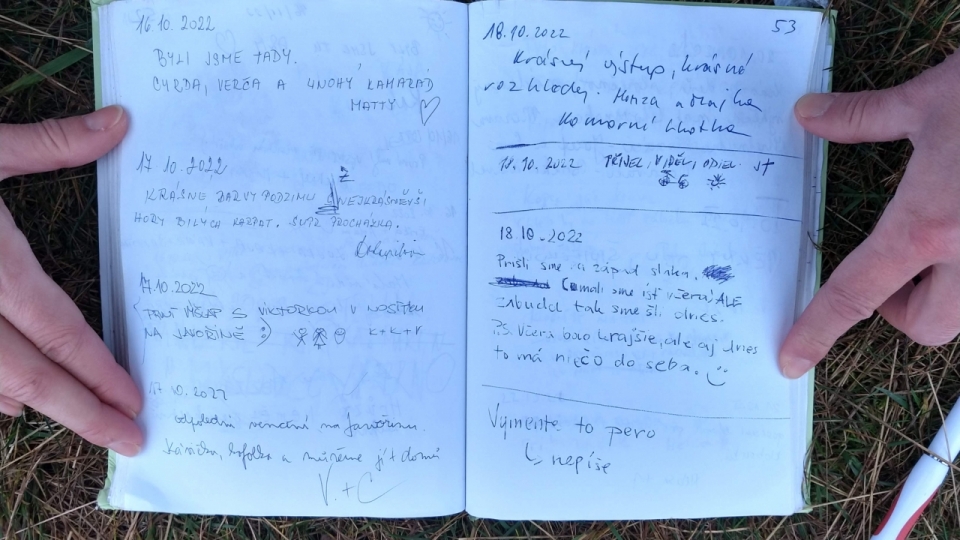 16.10.2022
BYLI JSME TADY.
CYRDA, VERČA A 4NOHÝ KAMARÁD
MATTY ♡
17 10.2022
KRÁSNE BARVY PODZIMU Z NEJKRÁSNĚJŠÍ
HORY BÍLÝCH KARPAT. SUPR PROCHÁZKA.
17.10.2022
S VIKTORKOU V NOSÍTKU
NA JAVOŘINĚ :) K+K+V
17 10.2022
odpolední na Javořinu.
kofolka a můžeme jít domů
V. + C
53
18.10.2022
Krásný výstup, krásné
rozhledy. Honza a
Komorní Lhotka
18.10.2022 PŘIJEL, VIDĚL, ODJEL. JT
18.10.2022
Prišli sme na západ slnka.
mali sme ísť včera, ALE
zabudla tak sme šli dnes.
P.S. Včera bolo krajšie, ale aj dnes
to má niečo do seba. :)
Vymeňte to pero
↳ nepíše